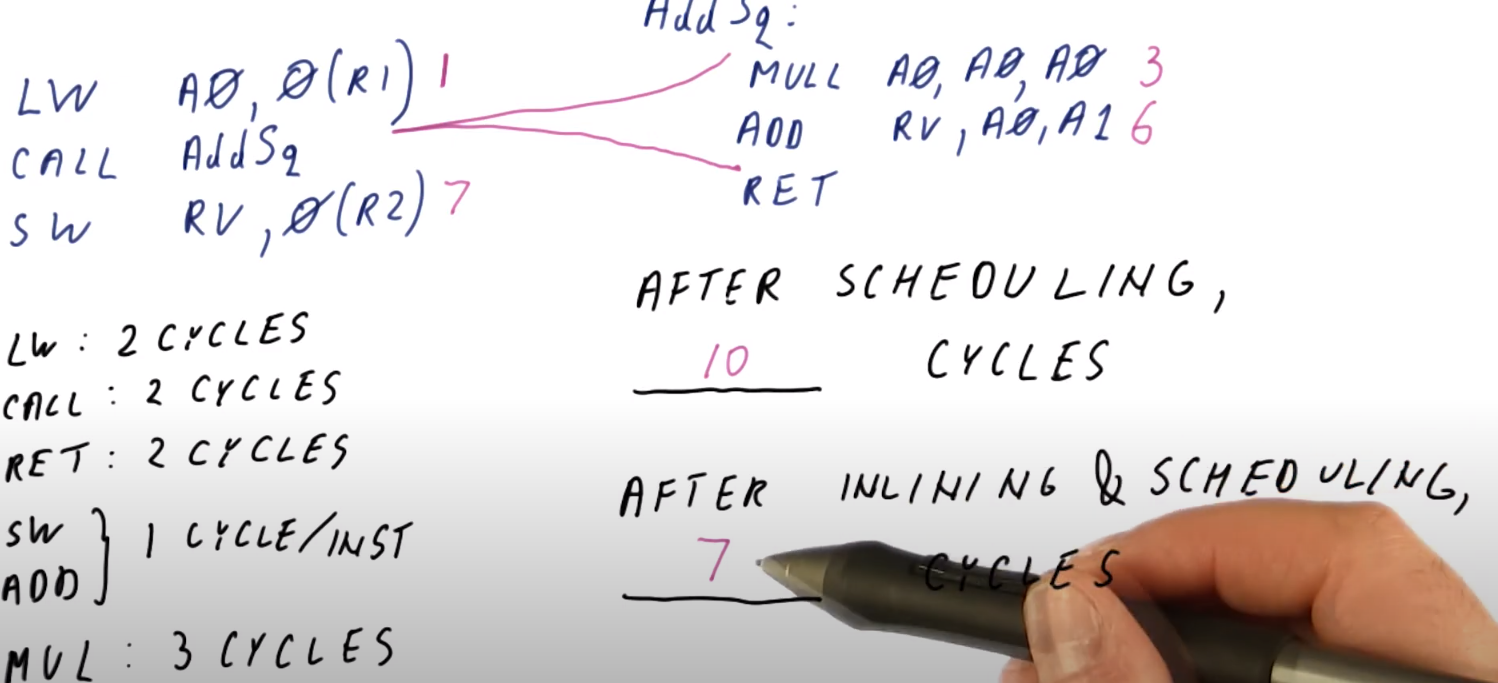 LW AØ, Ø(R1) 1
CALL AddSq
SW RV, Ø(R2) 7
AddSq:
MULL AØ, AØ, AØ 3
ADD RV, AØ, A1 6
RET
LW: 2 CYCLES
CALL: 2 CYCLES
RET: 2 CYCLES
SW
ADD } 1 CYCLE/INST
MUL: 3 CYCLES
AFTER SCHEDULING,
10 CYCLES
AFTER INLINING & SCHEDULING,
7 CYCLES